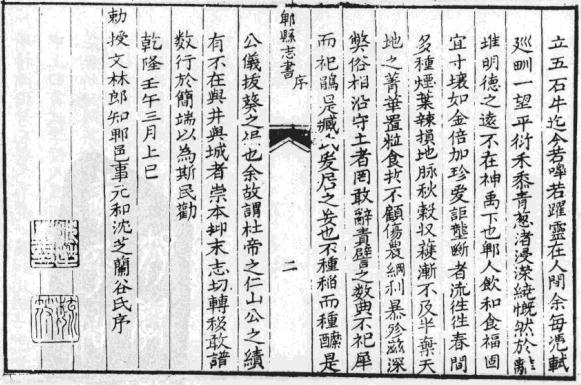 立五石牛迄今若若躍靈在人間余每憑軾
巡甽一望平衍禾黍青葱渚浸濚繞慨然於離
堆明德之遠不在神禹下也郫人飲和食福固
宜寸壤如金倍加珍愛詎壟斷者流徃徃春間
多種煙葉辣損地脉秋穀収穫漸不及半棄天
地之菁華置粒食扵不顧傷農網利暴殄滋深
獘俗相沿守土者罔敢辭責譬之數典不祀犀
郫縣志書
序
二
而祀鶢是臧氏爰居之也不種稻而種是
公儀拔葵之也余故謂杜帝之仁山公之績
有不在與井與城者崇本抑末志切轉移敢諸
數行於簡端以為斯民勸
乾隆壬午三月上巳
勅授文林郎知郫邑事元和沈芝蘭谷氏序